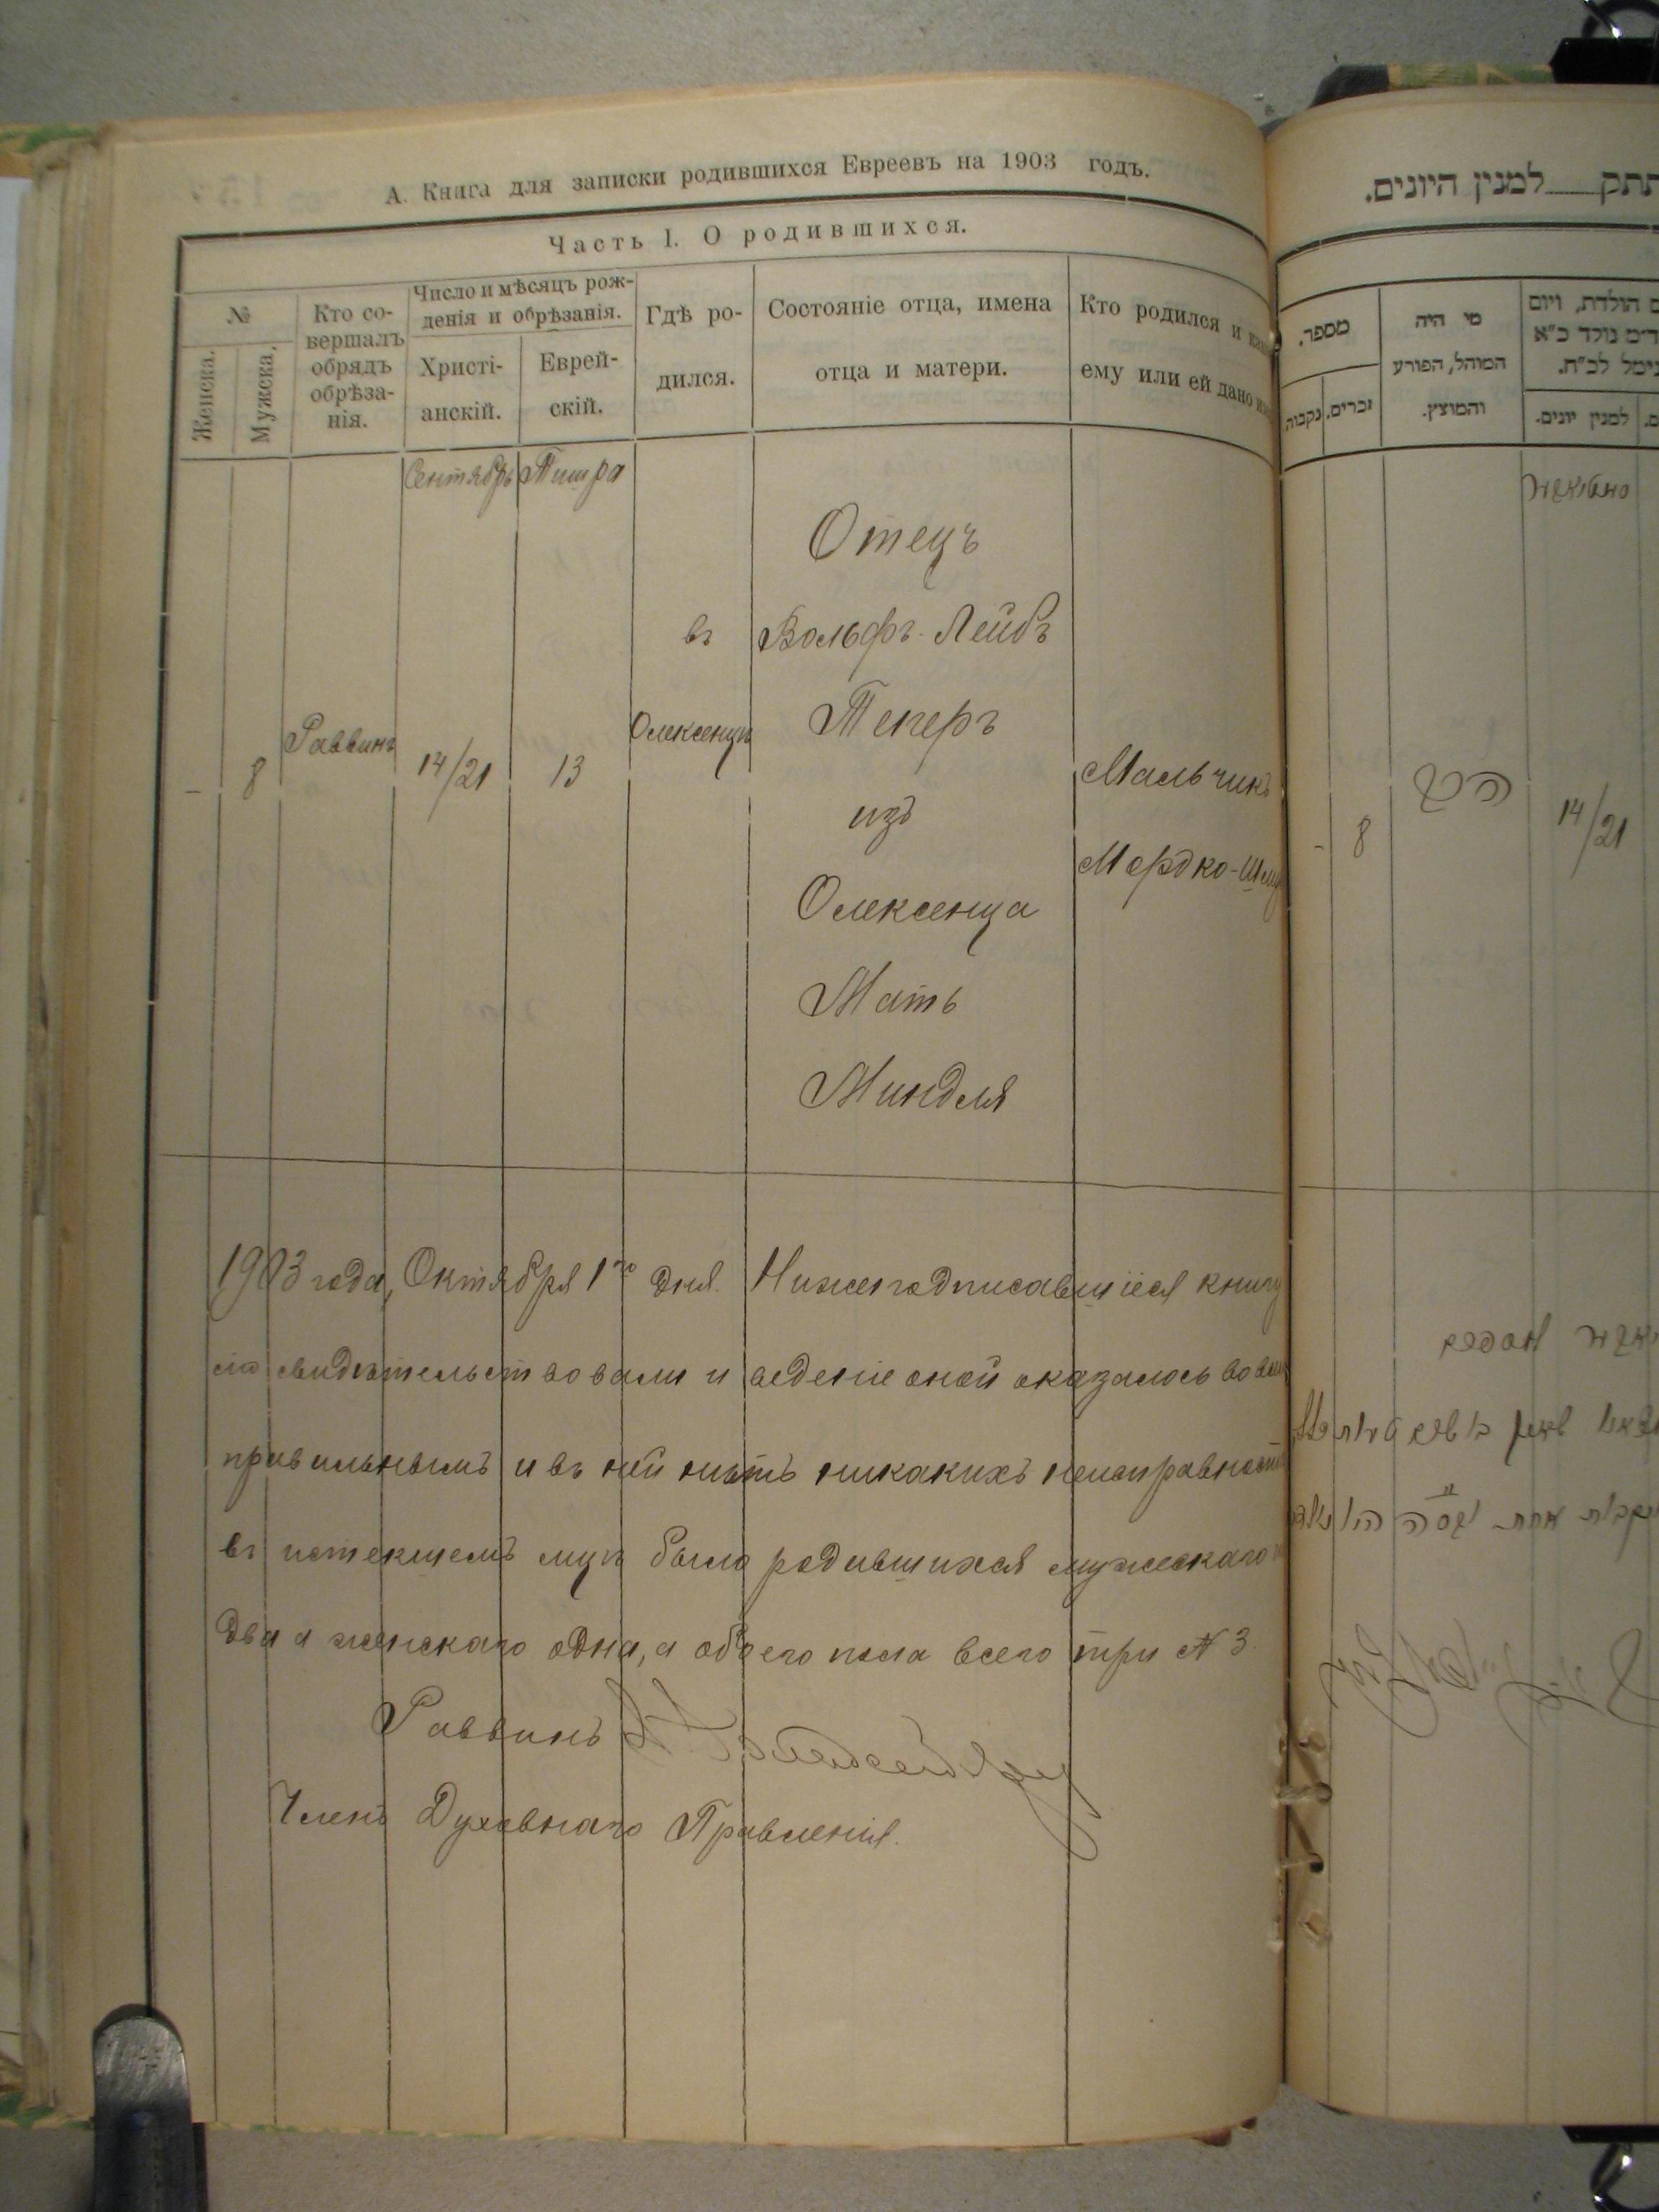 А. Книга для записки родившихся Евреевъ на 1903 годъ.
Часть I. О родившихся.
№
Женска.
Мужска.
Кто со-
вершалъ
обрядъ
обрѣза-
нія.
Число и мѣсяцъ рож-
денія и обрѣзанія.
Христі-
анскій.
Еврей-
скій.
Гдѣ ро-
дился.
Состояніе отца, имена
отца и матери.
Кто родился и
ему или ей дано
Сентябрь
Тишра
–
8
Раввинъ
14/21
13
въ
Олексенцѣ
Отецъ
Вольфъ-Лейбъ
Теперъ
изъ
Олексенца
Мать
Миндля
Мальчикъ
Мордко-
1903 года, Октября 1го дня. Нижеподписавшіеся книгу
сію свидѣтельствовали и веденіе оной оказалось во всемъ
правильнымъ и въ ней нѣтъ никакихъ
въ истекшемъ мцѣ было родившихся мужескаго
два а женскаго одна, а обоего пола всего три № 3.
Раввинъ
Членъ Духовнаго Правленія.
למנין היונים.
מספר.
נקבות.
זכרים.
מי היה
המוהל, הפורע
והמוצץ.
הולדת, ויום
נולד כ״א
לכ״ת.
למנין יונים.
–
8
הרב
14/21